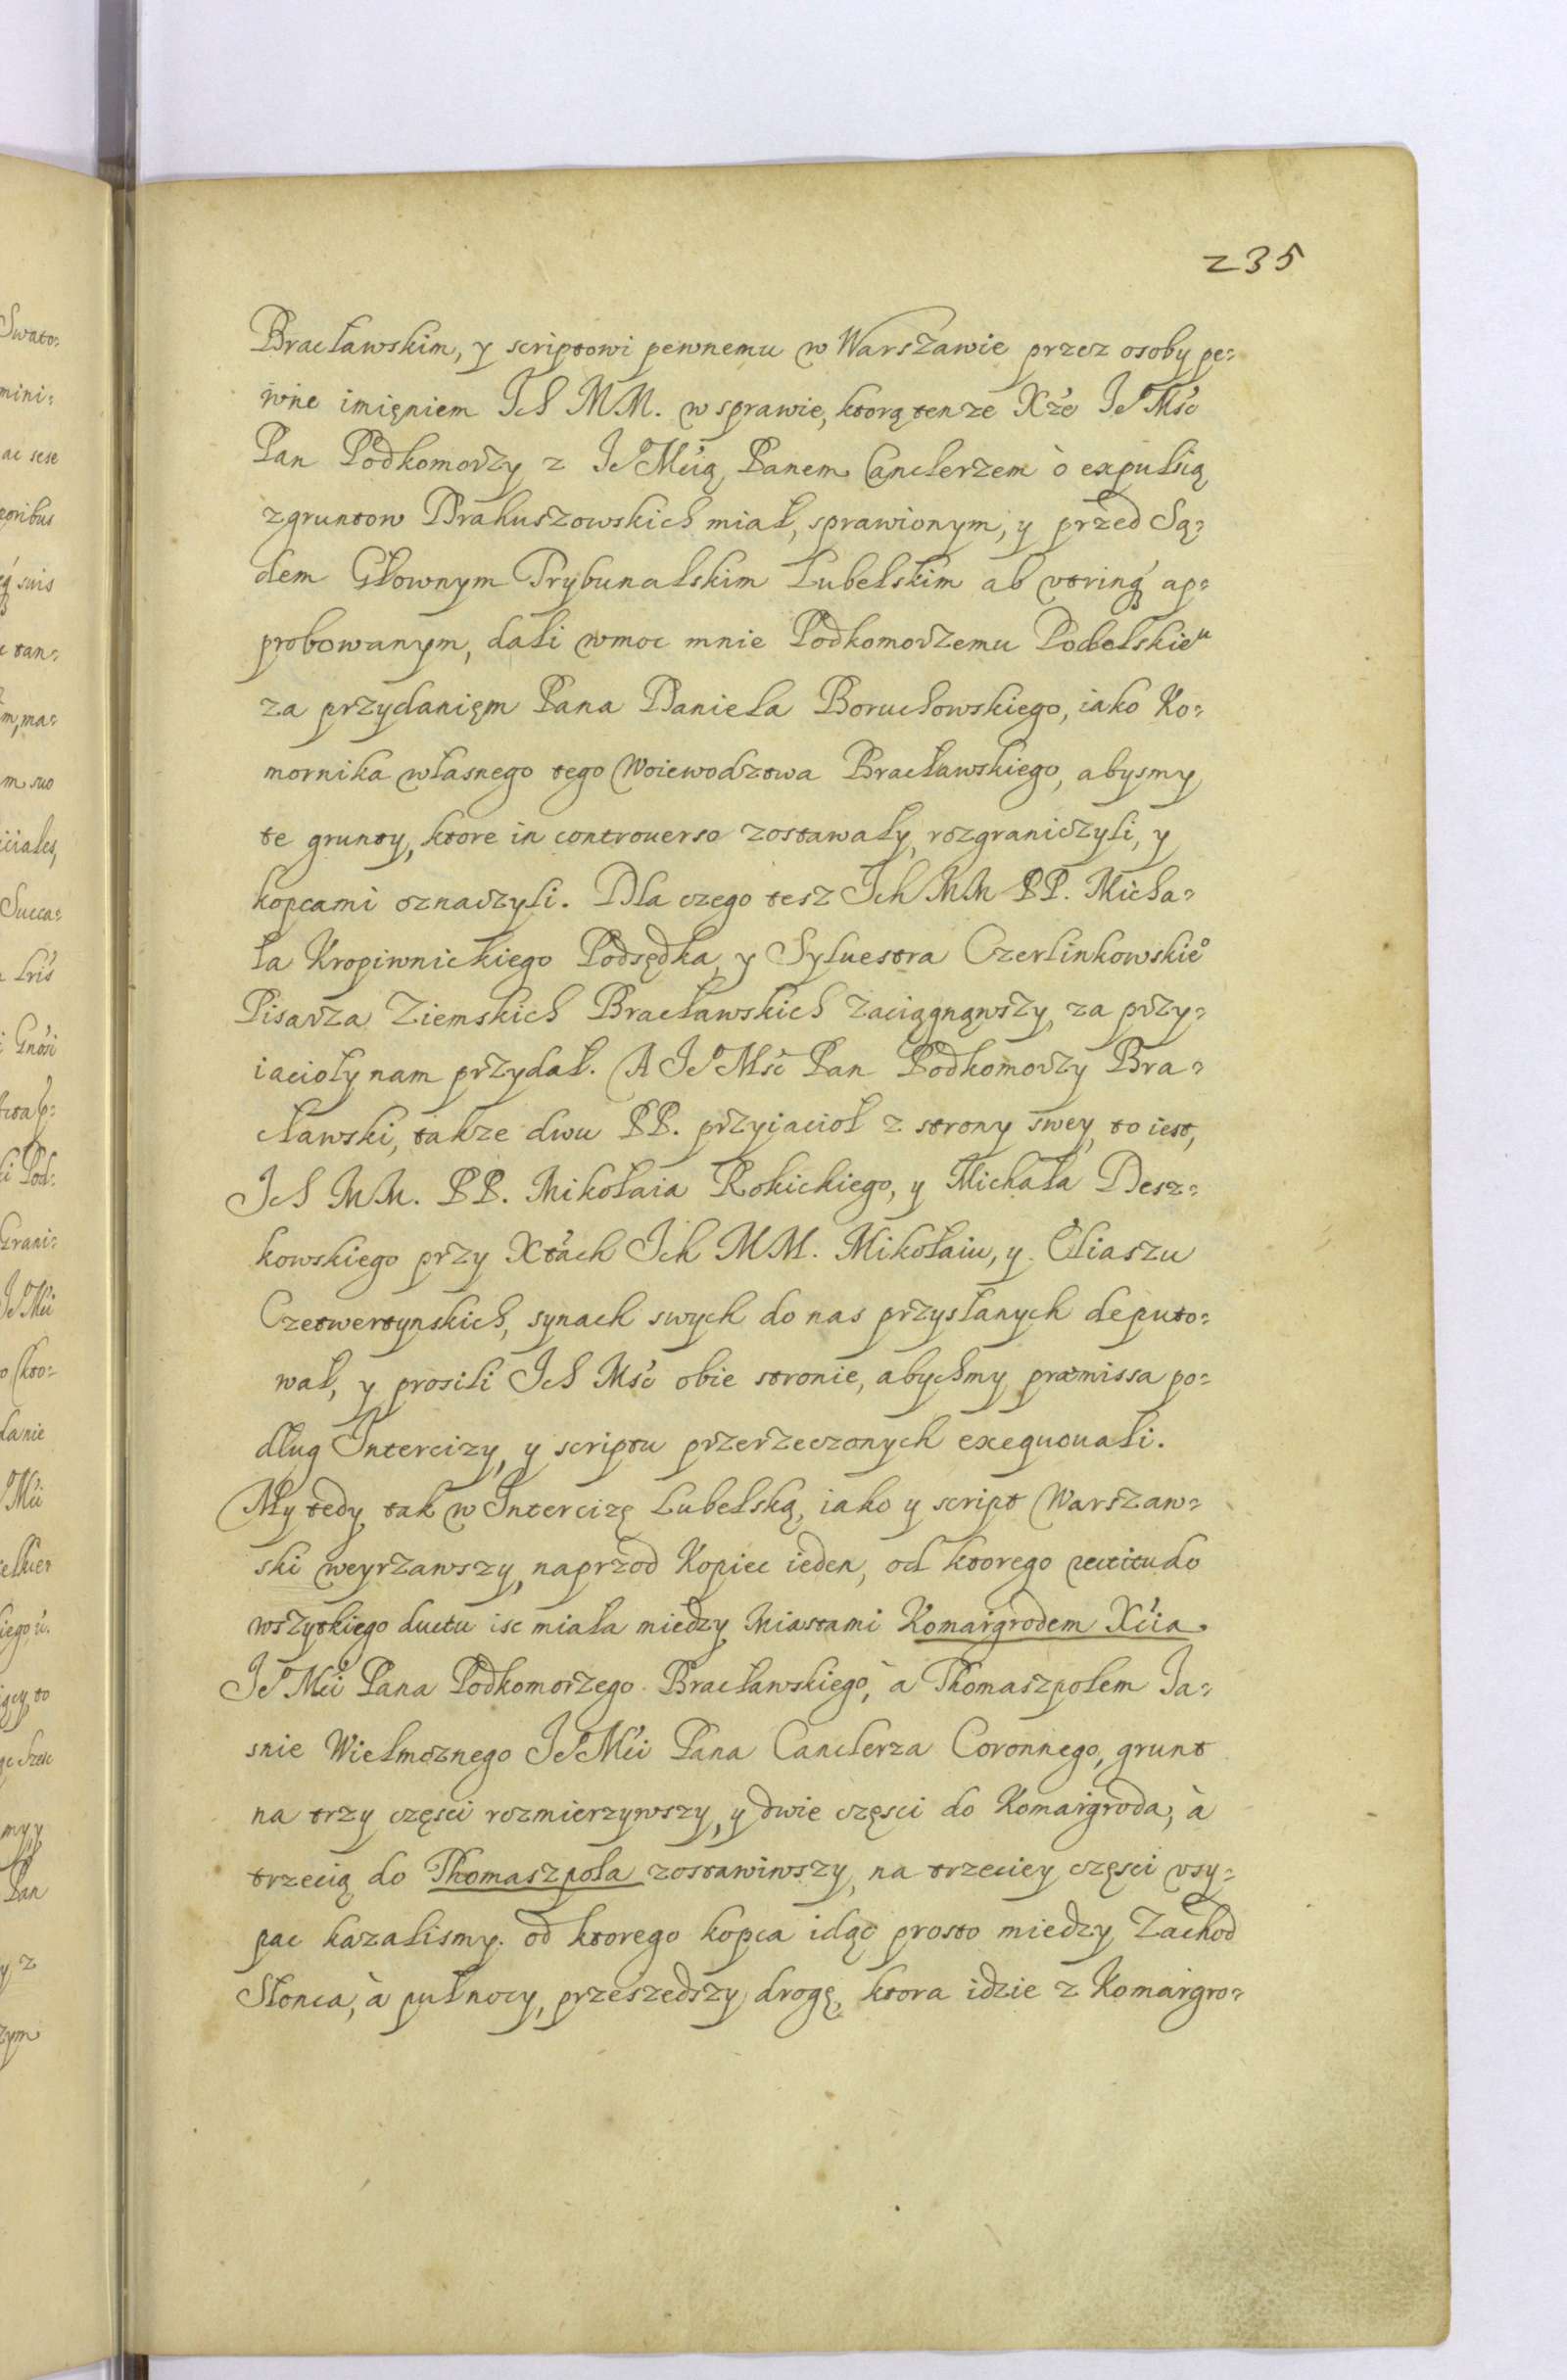 235
Bracławskim, y scriptowi pewnemu w Warszawie przez osoby pe=
wne imięniem Ich MM. w sprawie, ktorą tenze Xże Je͛ Mść
Pan Podkomorzy z Je͛ Mcią Panem Canclerzem ò expulsią
z gruntow Drakuszowskich miał, sprawionym, y przed Są=
dem Głownym Trybunalskim Lubelskim ab vtrinq́ ap=
probowanym, dali w moc mnie Podkomorzemu Podolskieᵘ
za przydanięm Pana Daniela Boruchowskiego, iako Ko=
mornika własnego tego Woiewodztwa Bracławskiego, abysmy
te grunty, ktore in controuerso zostawały, rozgraniczyli, y
kopcami oznaczyli. Dla czego tesz Ich MM PP. Micha=
ła Kropiwnickiego Podsędka, y Syluestra Czerlinkowskieº
Pisarza Ziemskich Bracławskich zaciągnąwszy, za przy=
iacioły nam przydał. A Je͛ Mść Pan Podkomorzy Bra=
cławski, takze dwu PP. przyiacioł z strony swey, to iest,
Ich MM. PP. Mikołaia Rokickiego, y Michała Desz=
kowskiego przy Xtách Ich MM. Mikołaiu, y Eliaszu
Czetwertynskich, synach swych do nas przysłanych deputo=
wał, y prosili Ich Mść obie stronie, abychmy præmissa po=
dług Intercizy, y scriptu przerzeczonych exequouali.
My tedy tak w Intercizę Lubelską, iako y script Warszaw=
ski weyrzawszy, naprzod Kopiec ieden, od ktorego rectitudo
wszytkiego ductu isc miała miedzy Miastami Komaigrodem Xcia
Je͛ Mći Pana Podkomorzego Bracławskiego, à Thomaszpolem Ja=
snie Wielmoznego Je͛ Mći Pana Canclerza Coronnego, grunt
na trzy częsci rozmierzywszy, y dwie częsci do Komaigroda, à
trzecią do Thomaszpola zostawiwszy, na trzeciey częsci vsy=
pac kazalismy. od ktorego kopca idąc prosto miedzy Zachod
Słonca, à pułnocy, przeszedszy drogę, ktora idzie z Komaigro=